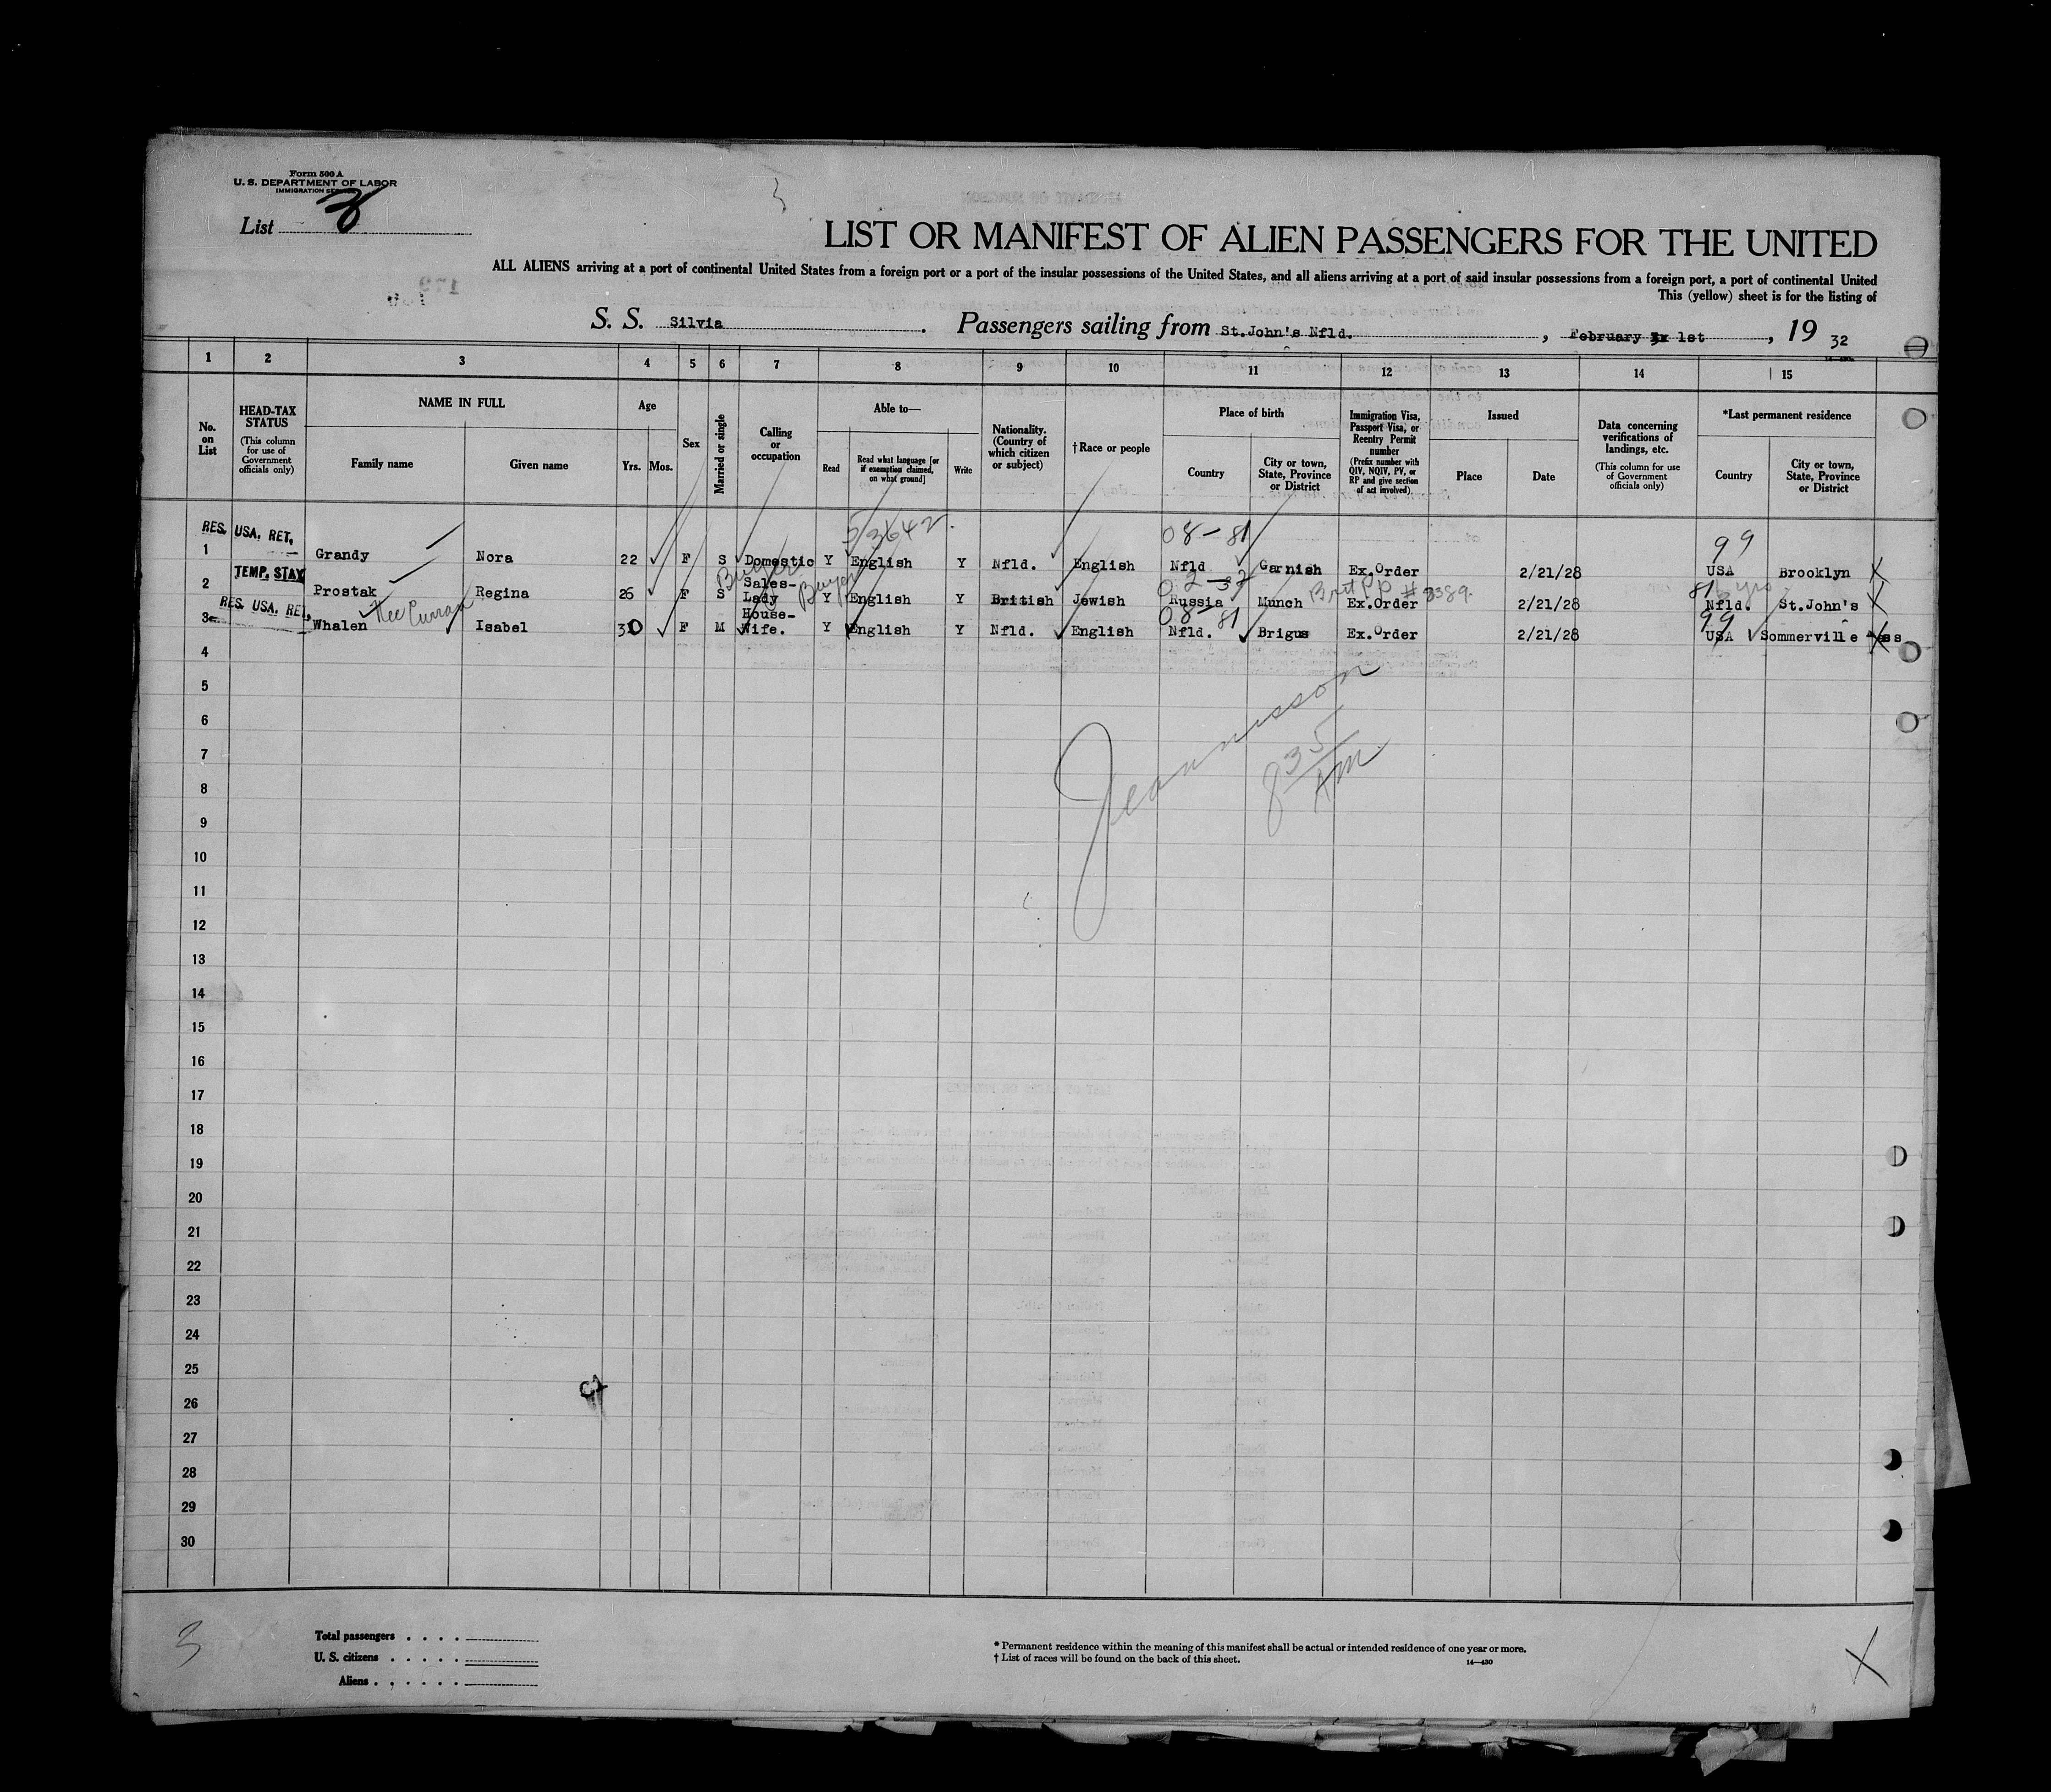 Form 500 A
U. S. DEPARTMENT OF LABOR
IMMIGRATION SERVICE
List
LIST OR MANIFEST OF ALIEN PASSENGERS FOR THE UNITED
ALL ALIENS arriving at a port of continental United States from a foreign port or a port of the insular possessions of the United States, and all aliens arriving at a port of said insular possessions from a foreign port, a port of continental United
This (yellow) sheet is for the listing of
S. S. Silvia. Passengers sailing from St.John's Nfld., February 1st, 19 32
1 2 3 4 5 6 7 8 9 10 11 12 13 14 15
No. on List
HEAD-TAX STATUS
(This column for use of Government officials only)
NAME IN FULL
Family name
Given name
Age
Yrs. Mos.
Sex
Married or single
Calling or occupation
Able to—
Read
Read what language [or if exemption claimed, on what ground]
Write
Nationality. (Country of which citizen or subject)
†Race or people
Place of birth
Country
City or town, State, Province or District
Immigration Visa, Passport Visa, or Reentry Permit number
(Prefix number with QIV, NQIV, PV, or RP and give section of act involved)
Issued
Place
Date
Data concerning verifications of landings, etc.
(This column for use of Government officials only)
*Last permanent residence
Country
City or town, State, Province or District
53642. 08-81 99
RES. USA. RET.
1 Grandy Nora 22 F S Domestic Y English Y Nfld. English Nfld Garnish Ex.Order 2/21/28 USA Brooklyn X
TEMP. STAY Buyer Buyer 02-37 Brit PP # 3389. 81 6 yrs
2 Prostak Regina 26 F S Sales-Lady Y English Y British Jewish Russia Munch Ex.Order 2/21/28 Nfld. St.John's X
RES. USA. RET. Nee Curran 08-81 99
3 Whalen Isabel 30 F M House-Wife. Y English Y Nfld. English Nfld. Brigus Ex.Order 2/21/28 USA Sommerville Mass
4
5
6
7
8
9
10
11
12
13
14
15
16
17
18
19
20
21
22
23
24
25
26
27
28
29
30
Jeannisson
8 35 AM
3
Total passengers
U. S. citizens
Aliens
* Permanent residence within the meaning of this manifest shall be actual or intended residence of one year or more.
† List of races will be found on the back of this sheet.
14—430
X